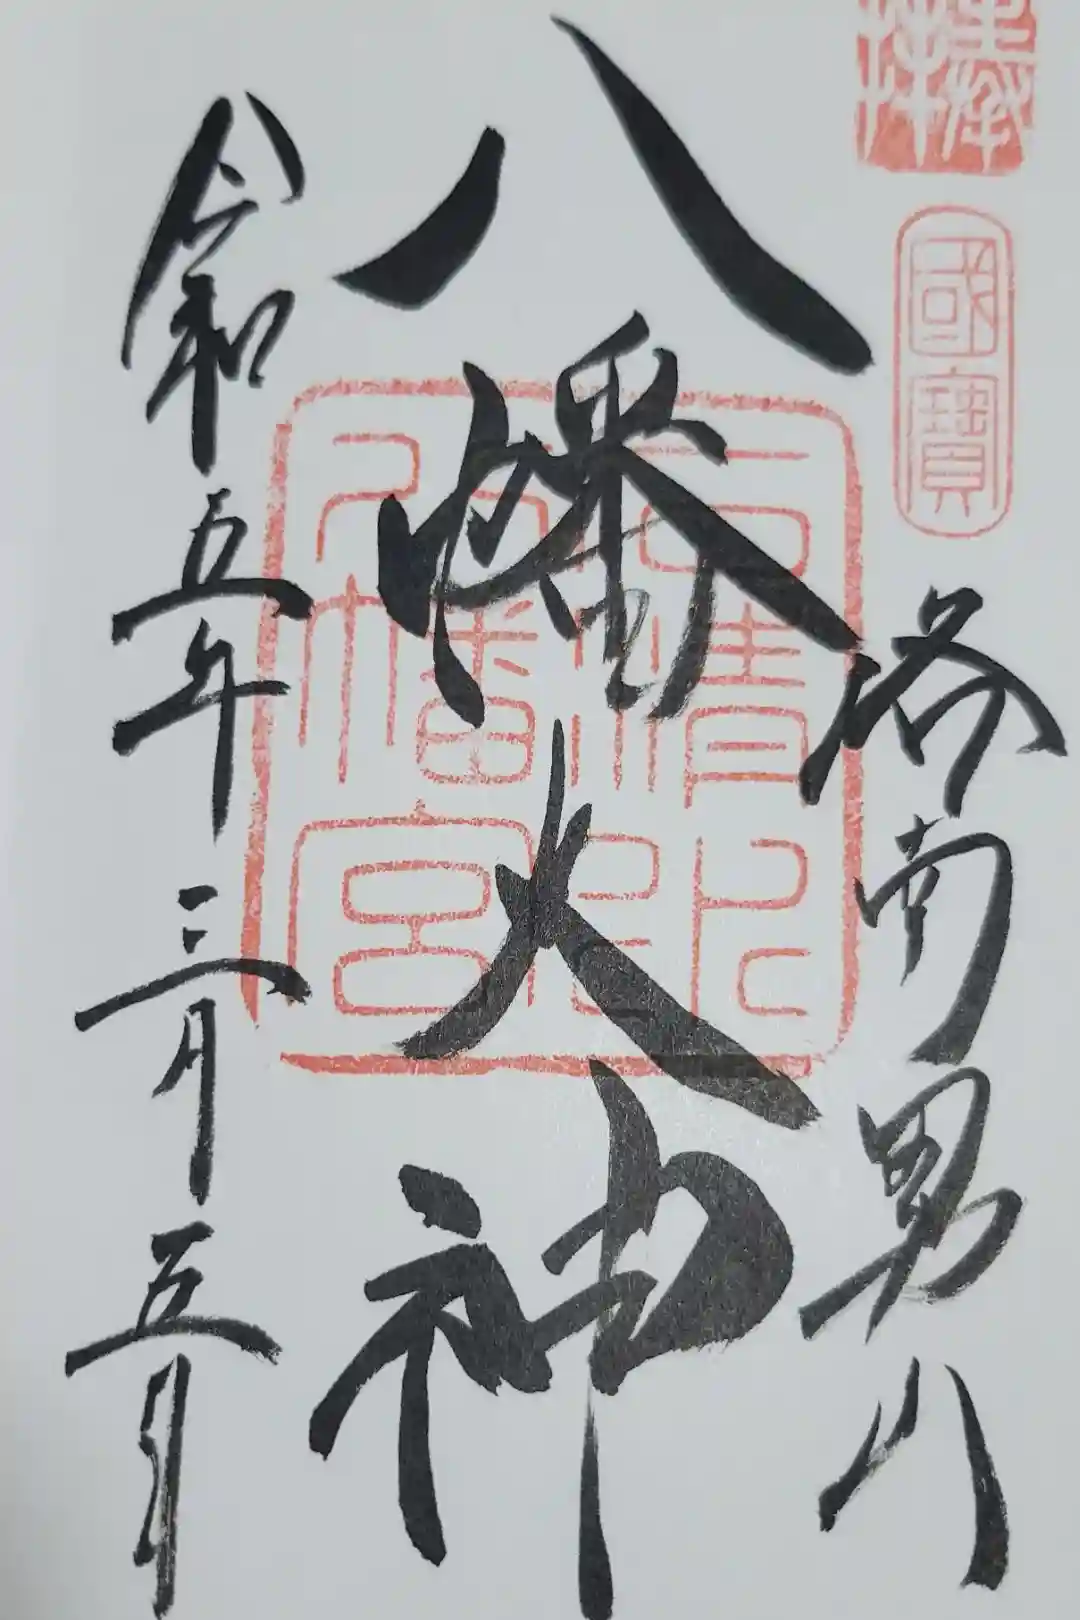 奉拝
國寳
洛南男山
八幡大神
石清水
八幡宮
令和五年三月五日